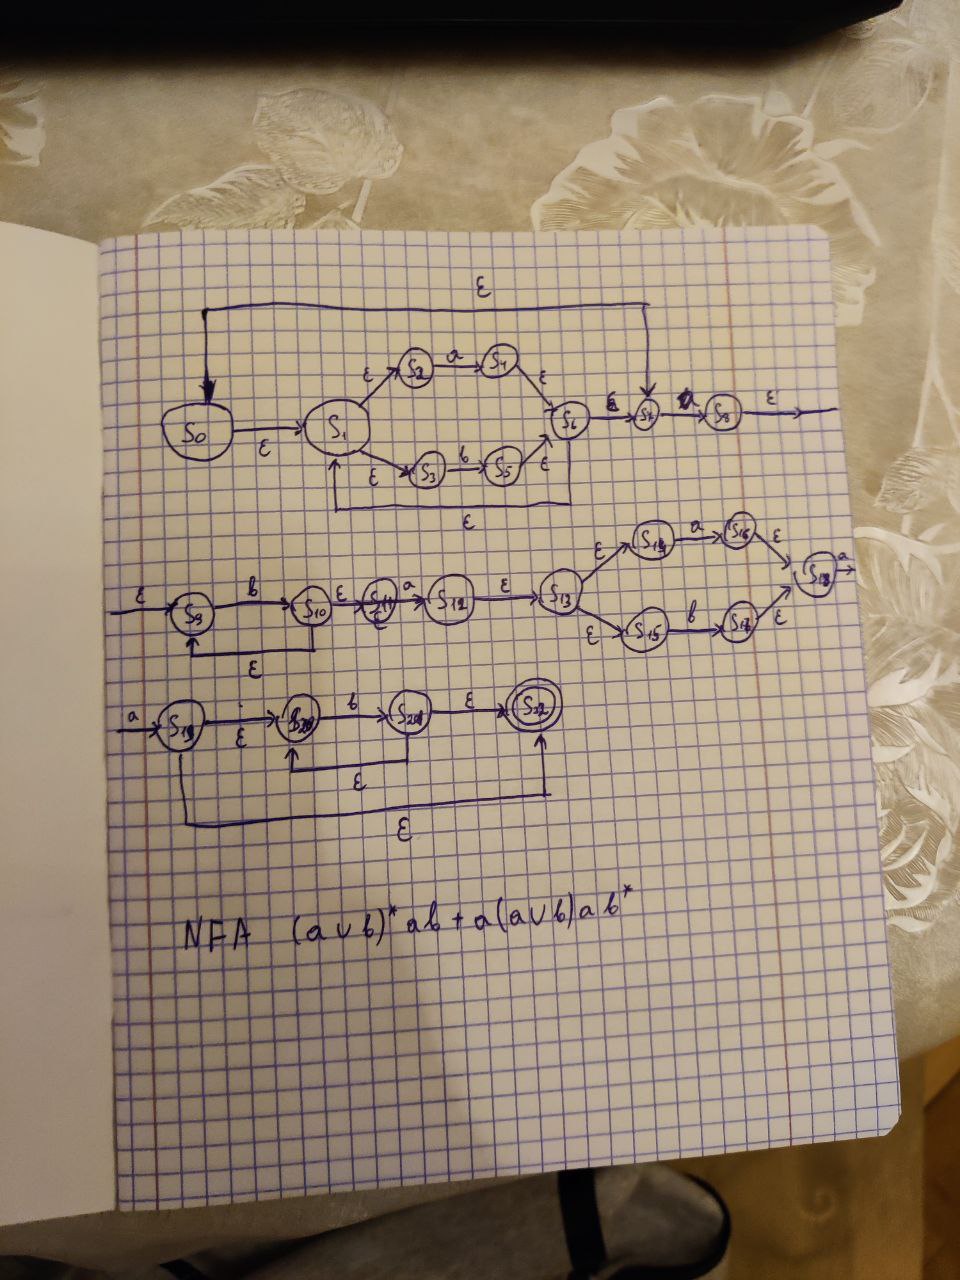 ε
S0 ε S1 ε S2 a S4 ε S6 ε S7 a S8 ε
ε S3 b S5 ε
ε
ε S9 b S10 ε S11 a S12 ε S13 ε S14 a S16 ε S18 a
ε S15 b S17 ε
ε
a S19 ε S20 b S21 ε S22
ε
ε
NFA (a ∪ b)* ab + a(a ∪ b) a b*